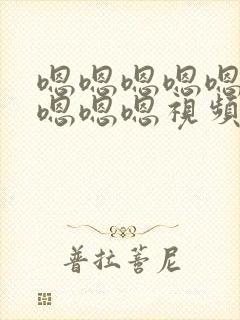 嗯嗯嗯嗯嗯
嗯嗯嗯視頻
普拉蒼尼